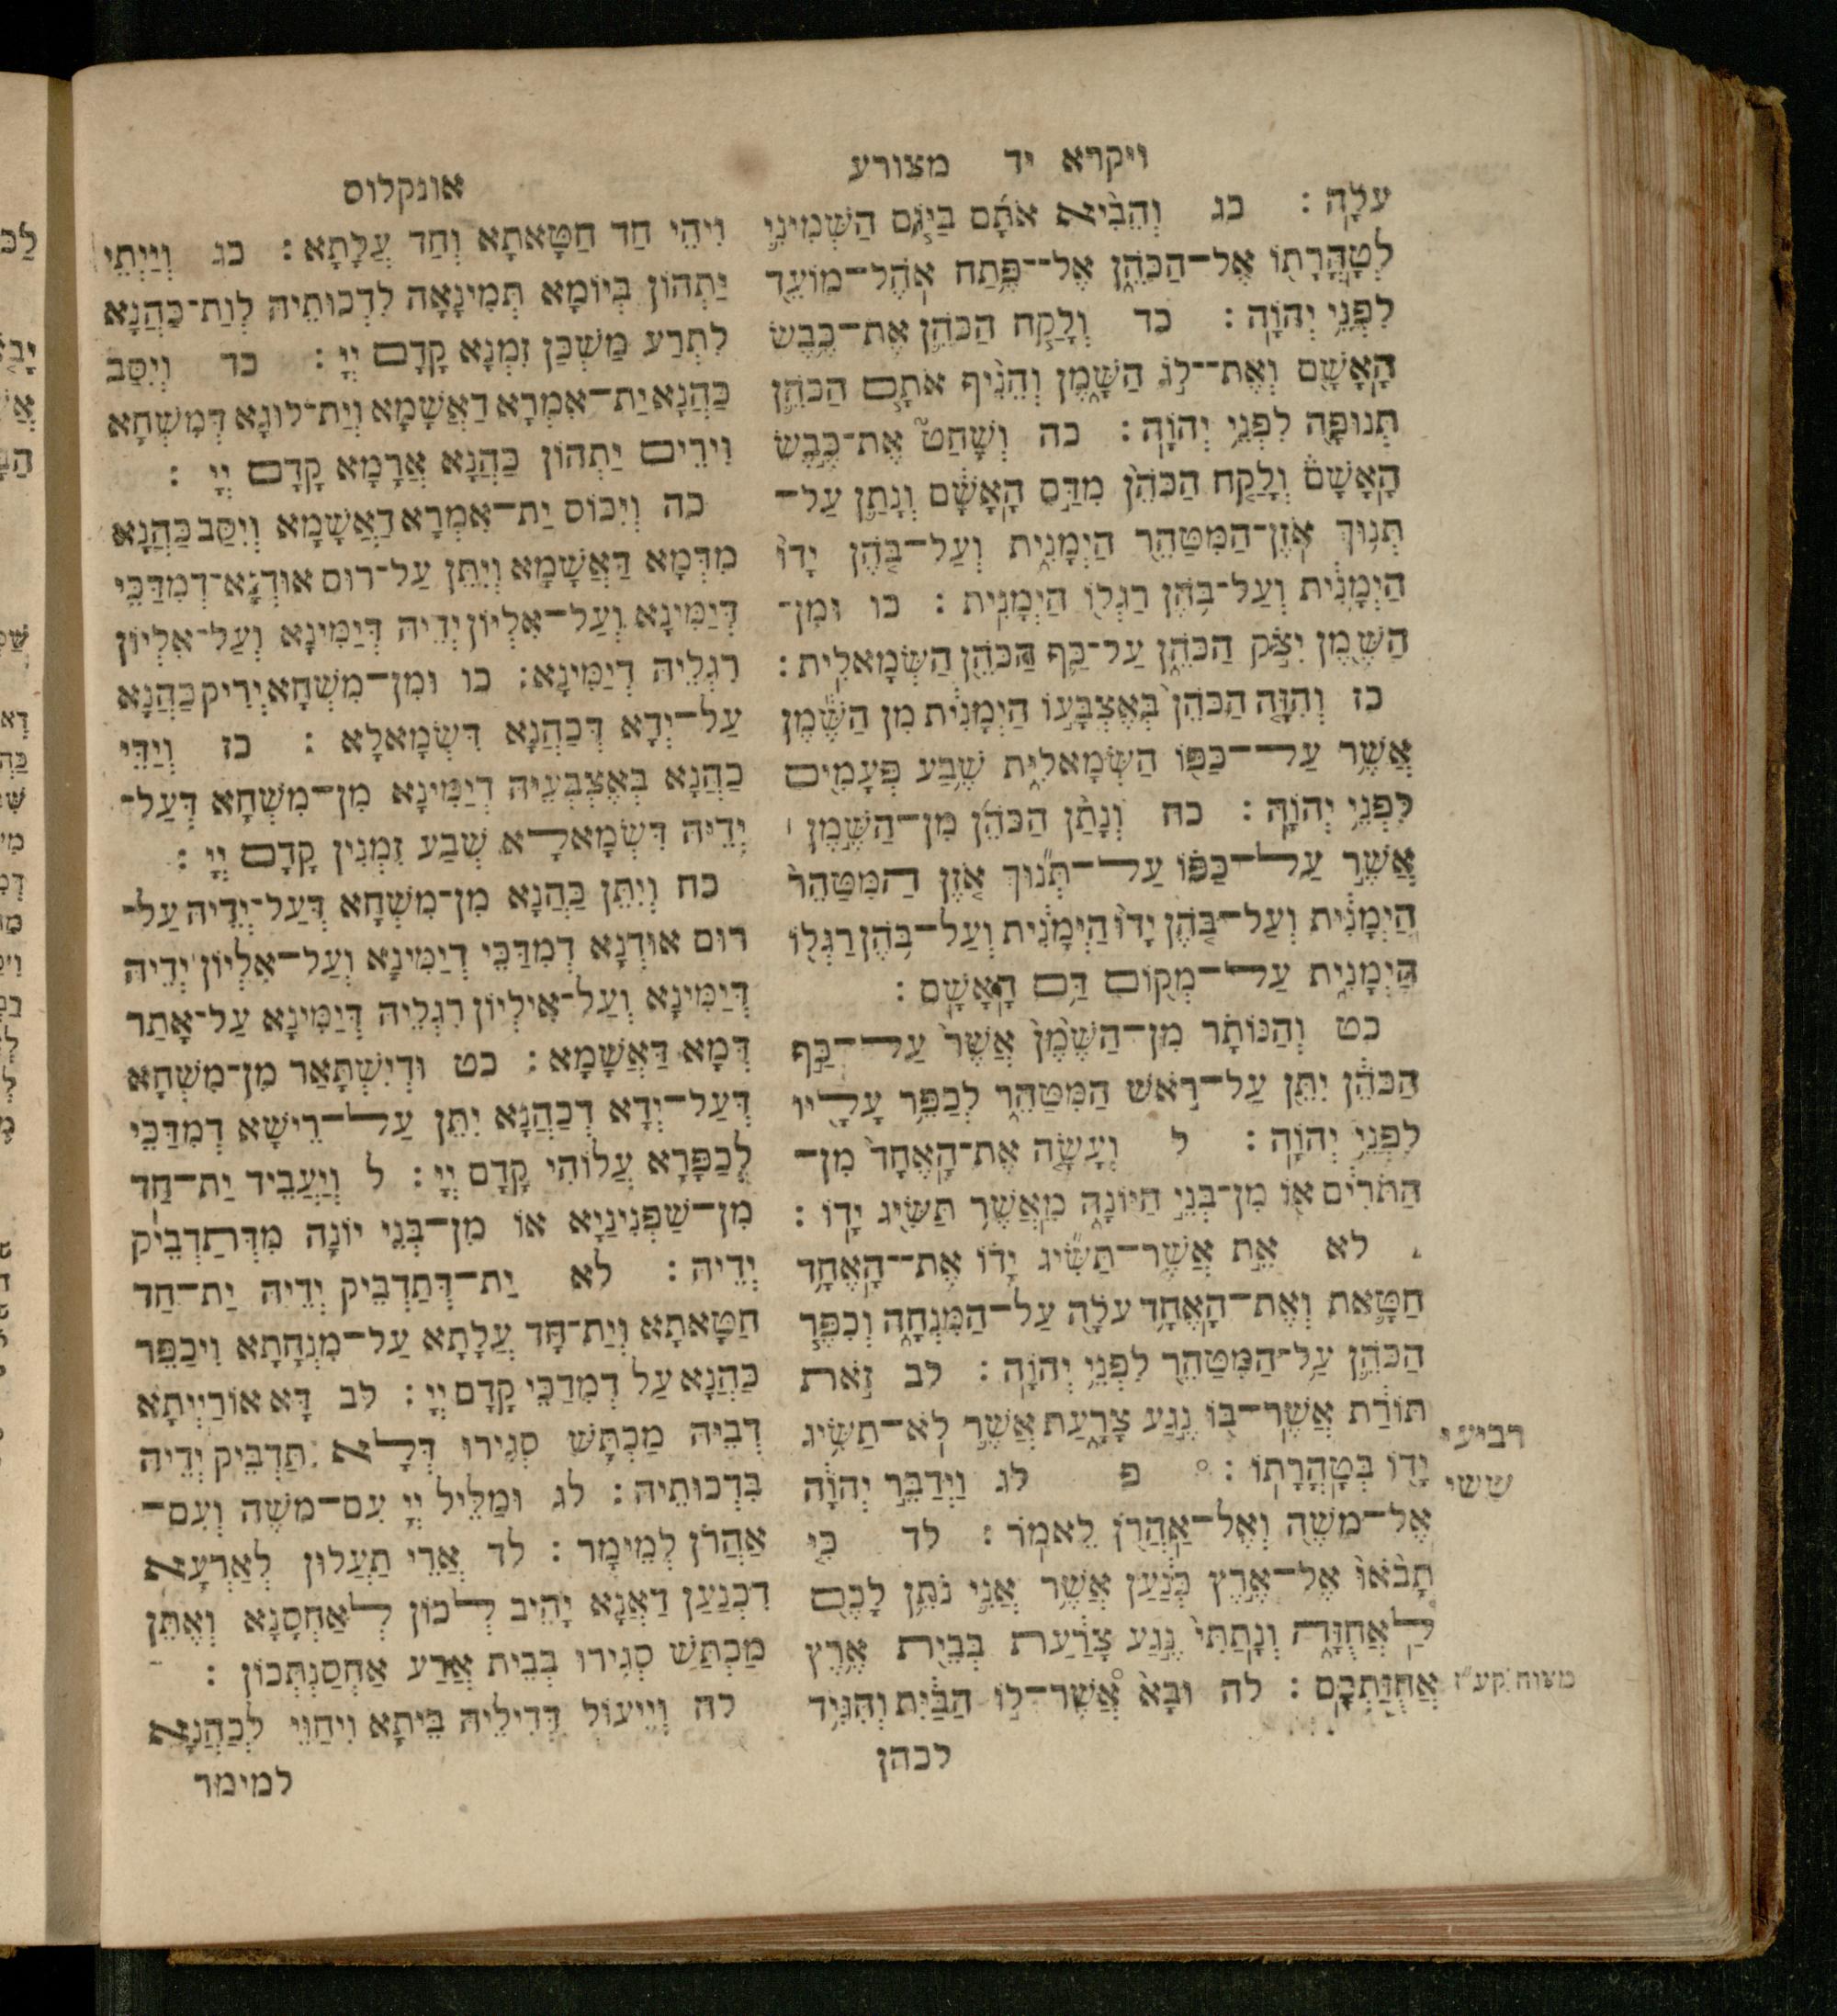 ויקרא יד מצורע
עֹלָֽה׃ כג וְהֵבִ֨יא אֹתָ֜ם בַּיּ֧וֹם הַשְּׁמִינִ֛י
לְטָהֳרָת֖וֹ אֶל־הַכֹּהֵ֑ן אֶל־פֶּ֥תַח אֹֽהֶל־מוֹעֵ֖ד
לִפְנֵ֥י יְהוָֽה׃ כד וְלָקַ֧ח הַכֹּהֵ֛ן אֶת־כֶּ֥בֶשׂ
הָאָשָׁ֖ם וְאֶת־לֹ֣ג הַשָּׁ֑מֶן וְהֵנִ֨יף אֹתָ֧ם הַכֹּהֵ֛ן
תְּנוּפָ֖ה לִפְנֵ֥י יְהוָֽה׃ כה וְשָׁחַט֮ אֶת־כֶּ֣בֶשׂ
הָֽאָשָׁם֒ וְלָקַ֤ח הַכֹּהֵן֙ מִדַּ֣ם הָֽאָשָׁ֔ם וְנָתַ֛ן עַל־
תְּנ֥וּךְ אֹֽזֶן־הַמִּטַּהֵ֖ר הַיְמָנִ֑ית וְעַל־בֹּ֤הֶן יָדוֹ֙
הַיְמָנִ֔ית וְעַל־בֹּ֥הֶן רַגְל֖וֹ הַיְמָנִֽית׃ כו וּמִן־
הַשֶּׁ֖מֶן יִצֹ֣ק הַכֹּהֵ֑ן עַל־כַּ֥ף הַכֹּהֵ֖ן הַשְּׂמָאלִֽית׃
כז וְהִזָּ֤ה הַכֹּהֵן֙ בְּאֶצְבָּע֣וֹ הַיְמָנִ֔ית מִן הַשֶּׁ֕מֶן
אֲשֶׁ֥ר עַל־כַּפּ֖וֹ הַשְּׂמָאלִ֑ית שֶׁ֥בַע פְּעָמִ֖ים
לִפְנֵ֥י יְהוָֽה׃ כח וְנָתַ֨ן הַכֹּהֵ֜ן מִן־הַשֶּׁ֣מֶן ׀
אֲשֶׁ֣ר עַל־כַּפּ֗וֹ עַל־תְּנ֞וּךְ אֹ֤זֶן הַמִּטַּהֵר֙
הַיְמָנִ֔ית וְעַל־בֹּ֤הֶן יָדוֹ֙ הַיְמָנִ֔ית וְעַל־בֹּ֥הֶן רַגְל֖וֹ
הַיְמָנִ֑ית עַל־מְק֖וֹם דַּ֥ם הָאָשָֽׁם׃
כט וְהַנּוֹתָ֗ר מִן־הַשֶּׁ֙מֶן֙ אֲשֶׁר֙ עַל־כַּ֣ף
הַכֹּהֵ֔ן יִתֵּ֖ן עַל־רֹ֣אשׁ הַמִּטַּהֵ֑ר לְכַפֵּ֥ר עָלָ֖יו
לִפְנֵ֥י יְהוָֽה׃ ל וְעָשָׂ֤ה אֶת־הָֽאֶחָד֙ מִן־
הַתֹּרִ֔ים א֖וֹ מִן־בְּנֵ֣י הַיּוֹנָ֑ה מֵאֲשֶׁ֥ר תַּשִּׂ֖יג יָדֽוֹ׃
לא אֵ֣ת אֲשֶׁר־תַּשִּׂ֞יג יָד֗וֹ אֶת־הָאֶחָ֥ד
חַטָּ֛את וְאֶת־הָאֶחָ֥ד עֹלָ֖ה עַל־הַמִּנְחָ֑ה וְכִפֶּ֧ר
הַכֹּהֵ֛ן עַ֥ל־הַמִּטַּהֵ֖ר לִפְנֵ֥י יְהוָֽה׃ לב זֹ֣את
תּוֹרַ֔ת אֲשֶׁר־בּ֖וֹ נֶ֣גַע צָרָ֑עַת אֲשֶׁ֛ר לֹֽא־תַשִּׂ֥יג
רביעי
יָד֖וֹ בְּטָהֳרָתֽוֹ׃ פ לג וַיְדַבֵּ֣ר יְהוָ֔ה
ששי
אֶל־מֹשֶׁ֥ה וְאֶֽל־אַהֲרֹ֖ן לֵאמֹֽר׃ לד כִּ֤י
תָבֹ֙אוּ֙ אֶל־אֶ֣רֶץ כְּנַ֔עַן אֲשֶׁ֥ר אֲנִ֛י נֹתֵ֥ן לָכֶ֖ם
לַאֲחֻזָּ֑ה וְנָתַתִּי֙ נֶ֣גַע צָרַ֔עַת בְּבֵ֖ית אֶ֥רֶץ
אֲחֻזַּתְכֶֽם׃ לה וּבָא֙ אֲשֶׁר־ל֣וֹ הַבַּ֔יִת וְהִגִּ֥יד
מצוה קע״ז
לכהן
אונקלוס
וִיהֵי חַד חַטָּאתָא וְחַד עֲלָתָא׃ כג וְיַיְתֵי
יַתְהוֹן בְּיוֹמָא תְּמִינָאָה לִדְכוּתֵיהּ לְוַת־כַּהֲנָא
לִתְרַע מַשְׁכַּן זִמְנָא קֳדָם יְיָ׃ כד וְיִסַּב
כַּהֲנָא יַת־אִמְּרָא דַאֲשָׁמָא וְיַת־לוּגָא דְּמִשְׁחָא
וִירֵים יַתְהוֹן כַּהֲנָא אֲרָמָא קֳדָם יְיָ׃
כה וְיִכּוֹס יַת־אִמְּרָא דַאֲשָׁמָא וְיִסַּב כַּהֲנָא
מִדְּמָא דַּאֲשָׁמָא וְיִתֵּן עַל־רוּם אוּדְנָא־דְמִדַּכֵּי
דְּיַמִּינָא וְעַל־אִלְיוֹן יְדֵיהּ דְּיַמִּינָא וְעַל־אִלְיוֹן
רִגְלֵיהּ דְּיַמִּינָא׃ כו וּמִן־מִשְׁחָא יְרִיק כַּהֲנָא
עַל־יְדָא דְּכַהֲנָא דִּשְׂמָאלָא׃ כז וְיַדֵּי
כַהֲנָא בְּאֶצְבְּעֵיהּ דְּיַמִּינָא מִן־מִשְׁחָא דְּעַל־
יְדֵיהּ דִּשְׂמָאלָא שְׁבַע זִמְנִין קֳדָם יְיָ׃
כח וְיִתֵּן כַּהֲנָא מִן־מִשְׁחָא דְּעַל־יְדֵיהּ עַל־
רוּם אוּדְנָא דְמִדַּכֵּי דְּיַמִּינָא וְעַל־אִלְיוֹן יְדֵיהּ
דְּיַמִּינָא וְעַל־אִילְיוֹן רִגְלֵיהּ דְּיַמִּינָא עַל־אֲתַר
דְּמָא דַּאֲשָׁמָא׃ כט וּדְיִשְׁתָּאַר מִן־מִשְׁחָא
דְּעַל־יְדָא דְכַהֲנָא יִתֵּן עַל־רֵישָׁא דְמִדַּכֵּי
לְכַפָּרָא עֲלוֹהִי קֳדָם יְיָ׃ ל וְיַעֲבֵיד יַת־חַד
מִן־שַׁפְנִינַיָּא אוֹ מִן־בְּנֵי יוֹנָה מִדְּתַדְבֵּיק
יְדֵיהּ׃ לא יַת־דְּתַדְבֵּיק יְדֵיהּ יַת־חַד
חַטָּאתָא וְיַת־חַד עֲלָתָא עַל־מִנְחָתָא וִיכַפֵּר
כַּהֲנָא עַל דְּמִדַּכֵּי קֳדָם יְיָ׃ לב דָּא אוֹרַיְיתָא
דְבֵיהּ מַכְתַּשׁ סְגִירוּ דְּלָא תַדְבֵּיק יְדֵיהּ
בִּדְכוּתֵיהּ׃ לג וּמַלֵּיל יְיָ עִם־מֹשֶׁה וְעִם־
אַהֲרֹן לְמֵימָר׃ לד אֲרֵי תַעֲלוּן לְאַרְעָא
דִכְנַעַן דַּאֲנָא יָהֵיב לְכוֹן לְאַחְסָנָא וְאֶתֵּן
מַכְתַּשׁ סְגִירוּ בְּבֵית אֲרַע אַחְסַנְתְּכוֹן׃
לה וְיֵיעוֹל דְּדִילֵיהּ בֵּיתָא וִיחַוֵּי לְכַהֲנָא
למימר